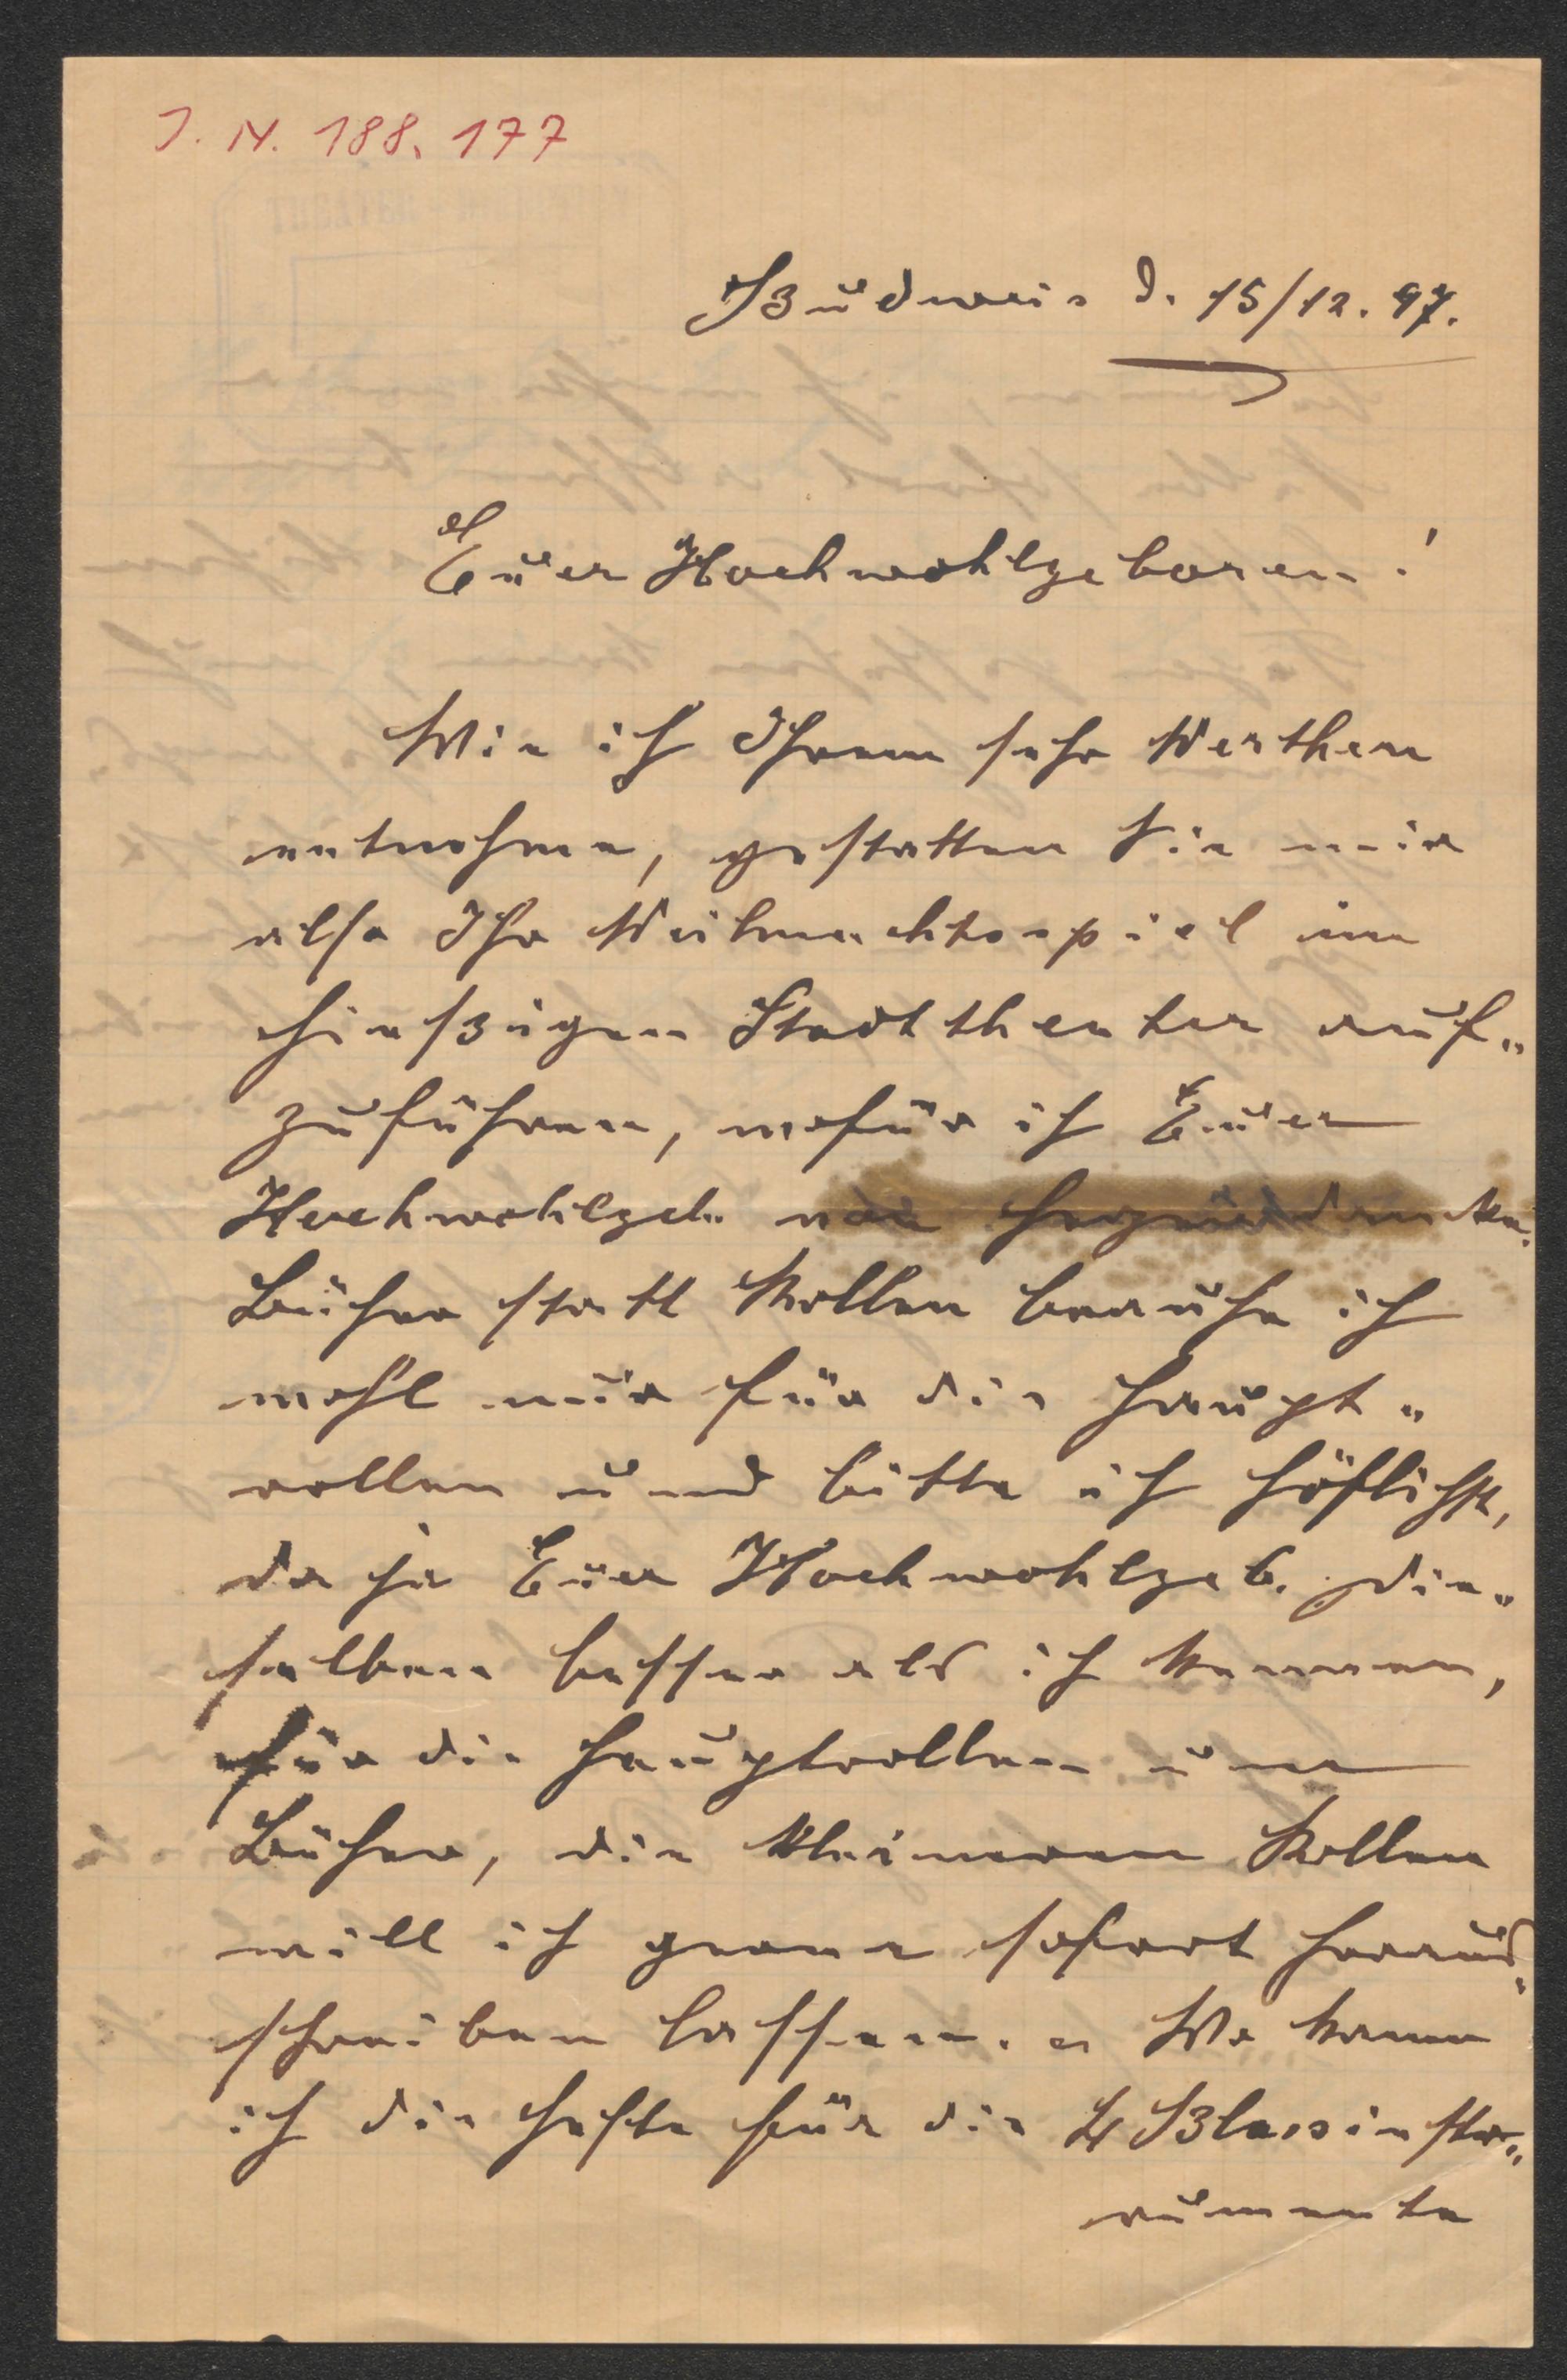 J. N. 188.177
Budweis d. 15/12. 97.
Euer Hochwohlgeboren!
Wie ich Ihrem sehr Werthen
entnehme, gestatten Sie mir
also Ihr Weihnachtsspiel im
hiesigen Stadttheater auf„
zuführen, wofür ich Euer
Hochwohlgeb.
Bücher statt Rollen brauche ich
wohl nur für die Haupt„
rollen und bitte ich höflichst,
da ja Euer Hochwohlgeb. die„
selben besser als ich kennen,
für die Hauptrollen um
Bücher, die kleineren Rollen
will ich gerne sofort heraus„
schreiben lassen. Wo kann
ich die Hefte für die 4 Blasinst„
rumente